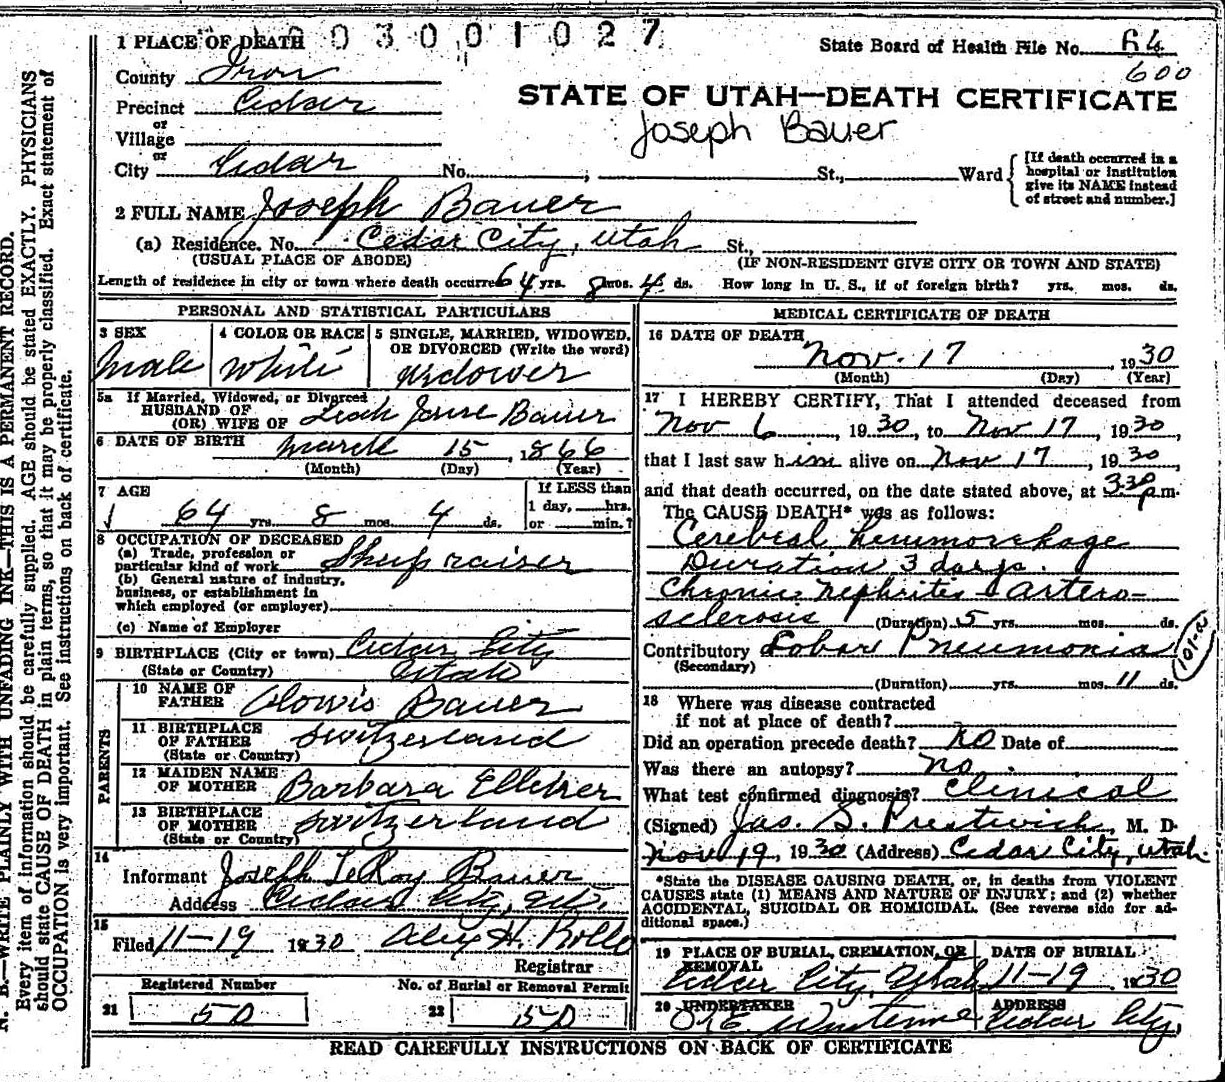 003001027
1 PLACE OF DEATH
State Board of Health File No. 64
600
County Iron
Precinct Cedar
or
Village
or
City Cedar No. , St., Ward
[If death occurred in a
hospital or institution
give its NAME instead
of street and number.]
STATE OF UTAH—DEATH CERTIFICATE
Joseph Bauer
2 FULL NAME Joseph Bauer
(a) Residence. No. Cedar City, Utah St.,
(USUAL PLACE OF ABODE) (IF NON-RESIDENT GIVE CITY OR TOWN AND STATE)
Length of residence in city or town where death occurred 64 yrs. 8 mos. 4 ds. How long in U. S., if of foreign birth? yrs. mos. ds.
PERSONAL AND STATISTICAL PARTICULARS
3 SEX
Male
4 COLOR OR RACE
White
5 SINGLE, MARRIED, WIDOWED,
OR DIVORCED (Write the word)
Widower
5a If Married, Widowed, or Divorced
HUSBAND OF
(OR) WIFE OF Leah Bauer
6 DATE OF BIRTH March 15, 1866
(Month) (Day) (Year)
7 AGE
64 yrs. 8 mos. 4 ds.
If LESS than
1 day, hrs.
or min.?
8 OCCUPATION OF DECEASED
(a) Trade, profession or
particular kind of work Sheep raiser
(b) General nature of industry,
business, or establishment in
which employed (or employer)
(c) Name of Employer
9 BIRTHPLACE (City or town) Cedar City
(State or Country) Utah
PARENTS
10 NAME OF
FATHER Alowis Bauer
11 BIRTHPLACE
OF FATHER Switzerland
(State or Country)
12 MAIDEN NAME
OF MOTHER Barbara
13 BIRTHPLACE
OF MOTHER Switzerland
(State or Country)
14
Informant Joseph LeRoy Bauer
Address Cedar City, Ut.
15
Filed 11-19 1930 Alex H. Rollo
Registrar
Registered Number
21 50
No. of Burial or Removal Permit
22 50
MEDICAL CERTIFICATE OF DEATH
16 DATE OF DEATH
Nov. 17 1930
(Month) (Day) (Year)
17 I HEREBY CERTIFY, That I attended deceased from
Nov 6, 1930, to Nov 17, 1930,
that I last saw him alive on Nov 17, 1930,
and that death occurred, on the date stated above, at 3:30 p.m.
The CAUSE DEATH* was as follows:
Cerebral hemmorehage
Duration 3 days.
Chronic Nephrites Artero-
sclerosis (Duration) 5 yrs. mos. ds.
Contributory Lobar Pneumonia
(Secondary)
(Duration) yrs. mos. 11 ds.
18 Where was disease contracted
if not at place of death?
Did an operation precede death? no Date of
Was there an autopsy? no.
What test confirmed diagnosis? Clinical
(Signed) Jas. S. Prestwich, M. D.
Nov 19, 1930 (Address) Cedar City, Utah
*State the DISEASE CAUSING DEATH, or, in deaths from VIOLENT
CAUSES state (1) MEANS AND NATURE OF INJURY; and (2) whether
ACCIDENTAL, SUICIDAL OR HOMICIDAL. (See reverse side for ad-
ditional space.)
19 PLACE OF BURIAL, CREMATION, OR
REMOVAL
Cedar City, Utah
DATE OF BURIAL
11-19 1930
20 UNDERTAKER
ADDRESS
Cedar City,
READ CAREFULLY INSTRUCTIONS ON BACK OF CERTIFICATE
N. B.—WRITE PLAINLY WITH UNFADING INK—THIS IS A PERMANENT RECORD.
Every item of information should be carefully supplied. AGE should be stated EXACTLY. PHYSICIANS
should state CAUSE OF DEATH in plain terms, so that it may be properly classified. Exact statement of
OCCUPATION is very important. See instructions on back of certificate.